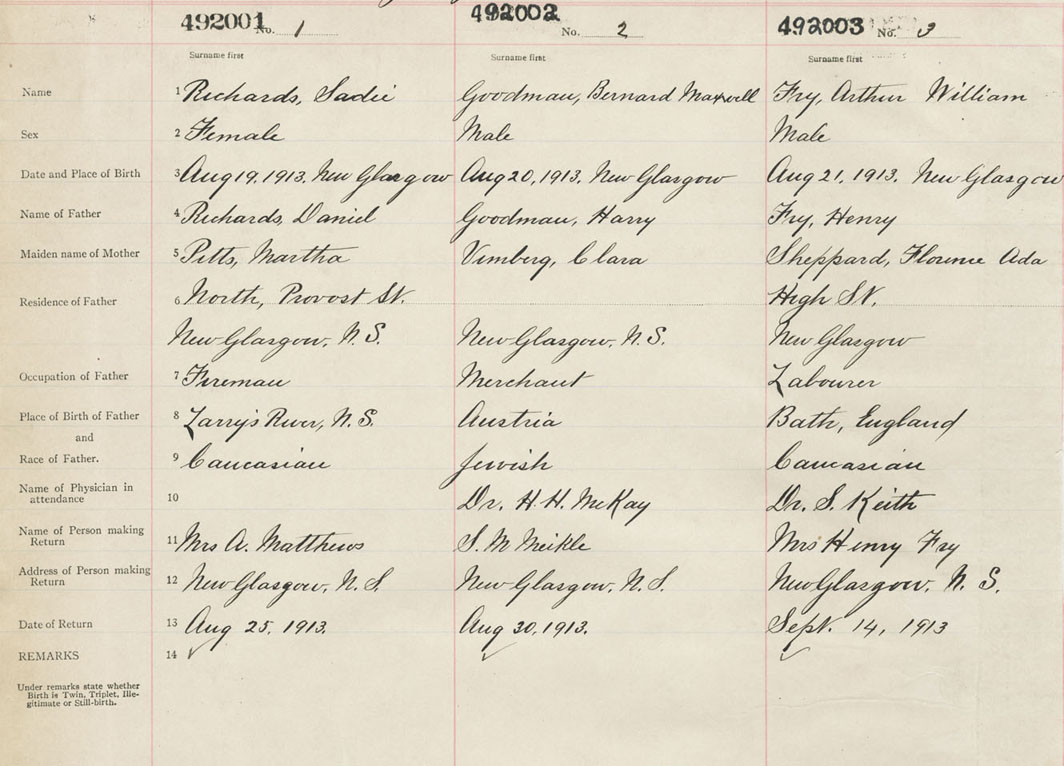 492001 No. 1 492002 No. 2 492003 No. 3
Surname first Surname first Surname first
Name 1 Richards, Sadie Goodman, Bernard Maxwell Fry, Arthur William
Sex 2 Female Male Male
Date and Place of Birth 3 Aug 19, 1913. New Glasgow Aug 20, 1913. New Glasgow Aug 21, 1913. New Glasgow
Name of Father 4 Richards, Daniel Goodman, Harry Fry, Henry
Maiden name of Mother 5 Pitts, Martha Vimberg, Clara Sheppard, Florence Ada
Residence of Father 6 North, Provost St. High St.
New Glasgow, N.S. New Glasgow, N.S. New Glasgow
Occupation of Father 7 Fireman Merchant Labourer
Place of Birth of Father 8 Larry's River, N.S. Austria Bath, England
and
Race of Father. 9 Caucasian Jewish Caucasian
Name of Physician in
attendance 10 Dr. H. H. McKay Dr. S. Keith
Name of Person making
Return 11 Mrs A. Matthews S. M Meikle Mrs Henry Fry
Address of Person making
Return 12 New Glasgow, N.S. New Glasgow, N.S. New Glasgow, N.S.
Date of Return 13 Aug 25, 1913. Aug 30, 1913. Sept. 14, 1913
REMARKS 14 ✓ ✓ ✓
Under remarks state whether
Birth is Twin, Triplet, Ille-
gitimate or Still-birth.